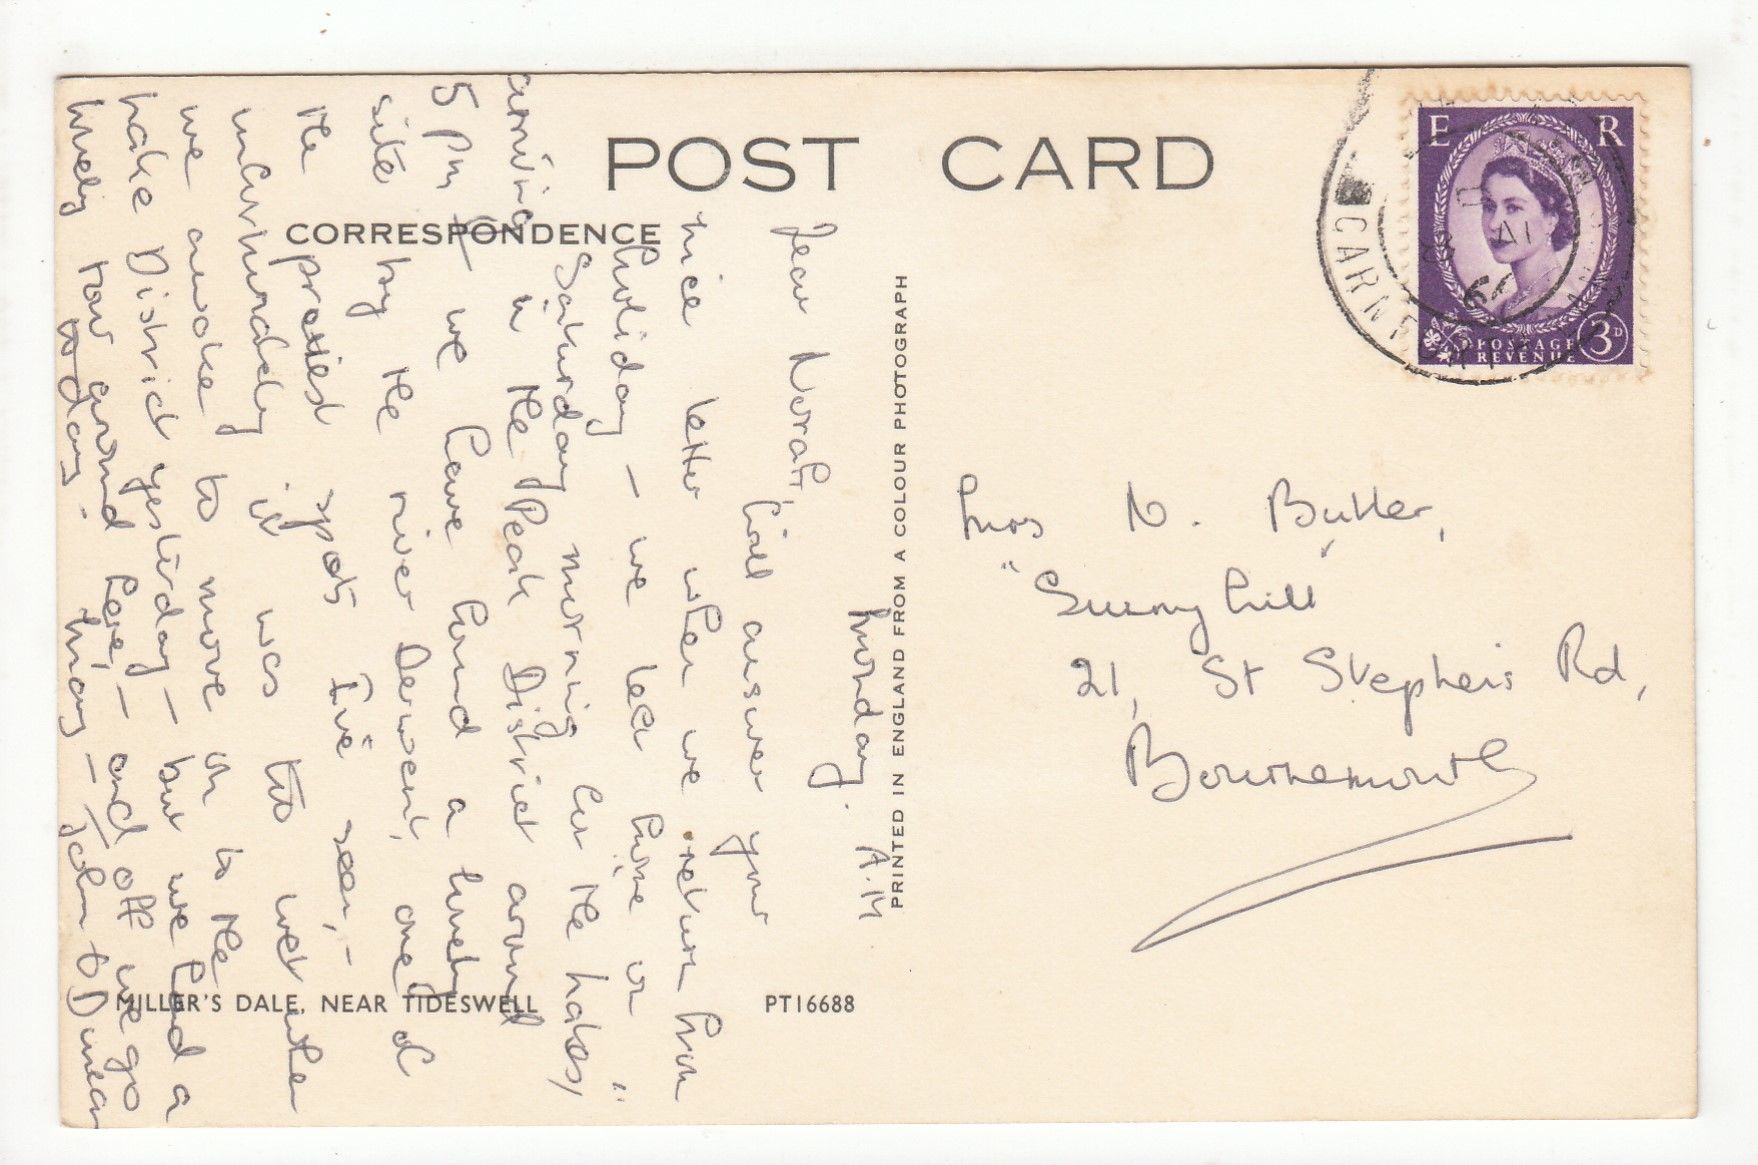 POST CARD
CORRESPONDENCE
Monday. A.M
Dear Norah,
Will answer your
nice letter when we return from
holiday – we left home on
Saturday morning for the Lakes,
arriving in the Peak District around
5 pm – we have found a lovely
site by the river Derwent, one of
the prettiest spots I've seen, –
unfortunately it was too wet when
we awoke to move on to the
Lake District yesterday – but we had a
lovely row around here, – and off we go
today. May – John & Duncan
MILLER'S DALE, NEAR TIDESWELL
PT16688
PRINTED IN ENGLAND FROM A COLOUR PHOTOGRAPH
E R
POSTAGE
REVENUE
3D
Mrs N. Butler,
"Sunnyhill"
21, St Stephen's Rd,
Bournemouth